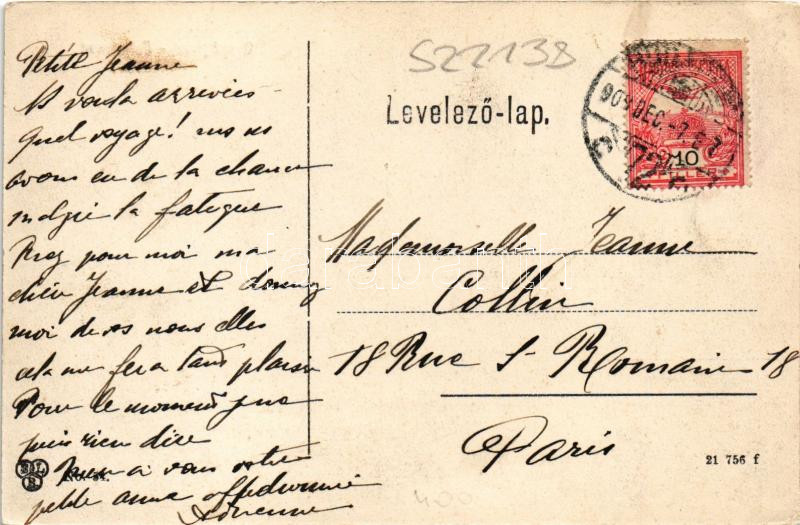 Petite Jeanne
Et voila arrivées
Quel voyage! nous
avons eu de la chance
malgré la fatigue
Priez pour moi ma
chère Jeanne et donnez
moi de vos nouvelles
cela me fera tant plaisir
Pour le moment je ne
puis rien dire
a vous votre
petite amie affectionnée
Adrienne
No. 
522138
Levelező-lap.
909 DEC.
10
FILLÉR
Mademoiselle Jeanne
Collin
18 Rue St Romain 18
Paris
21 756 f
400
darabanth